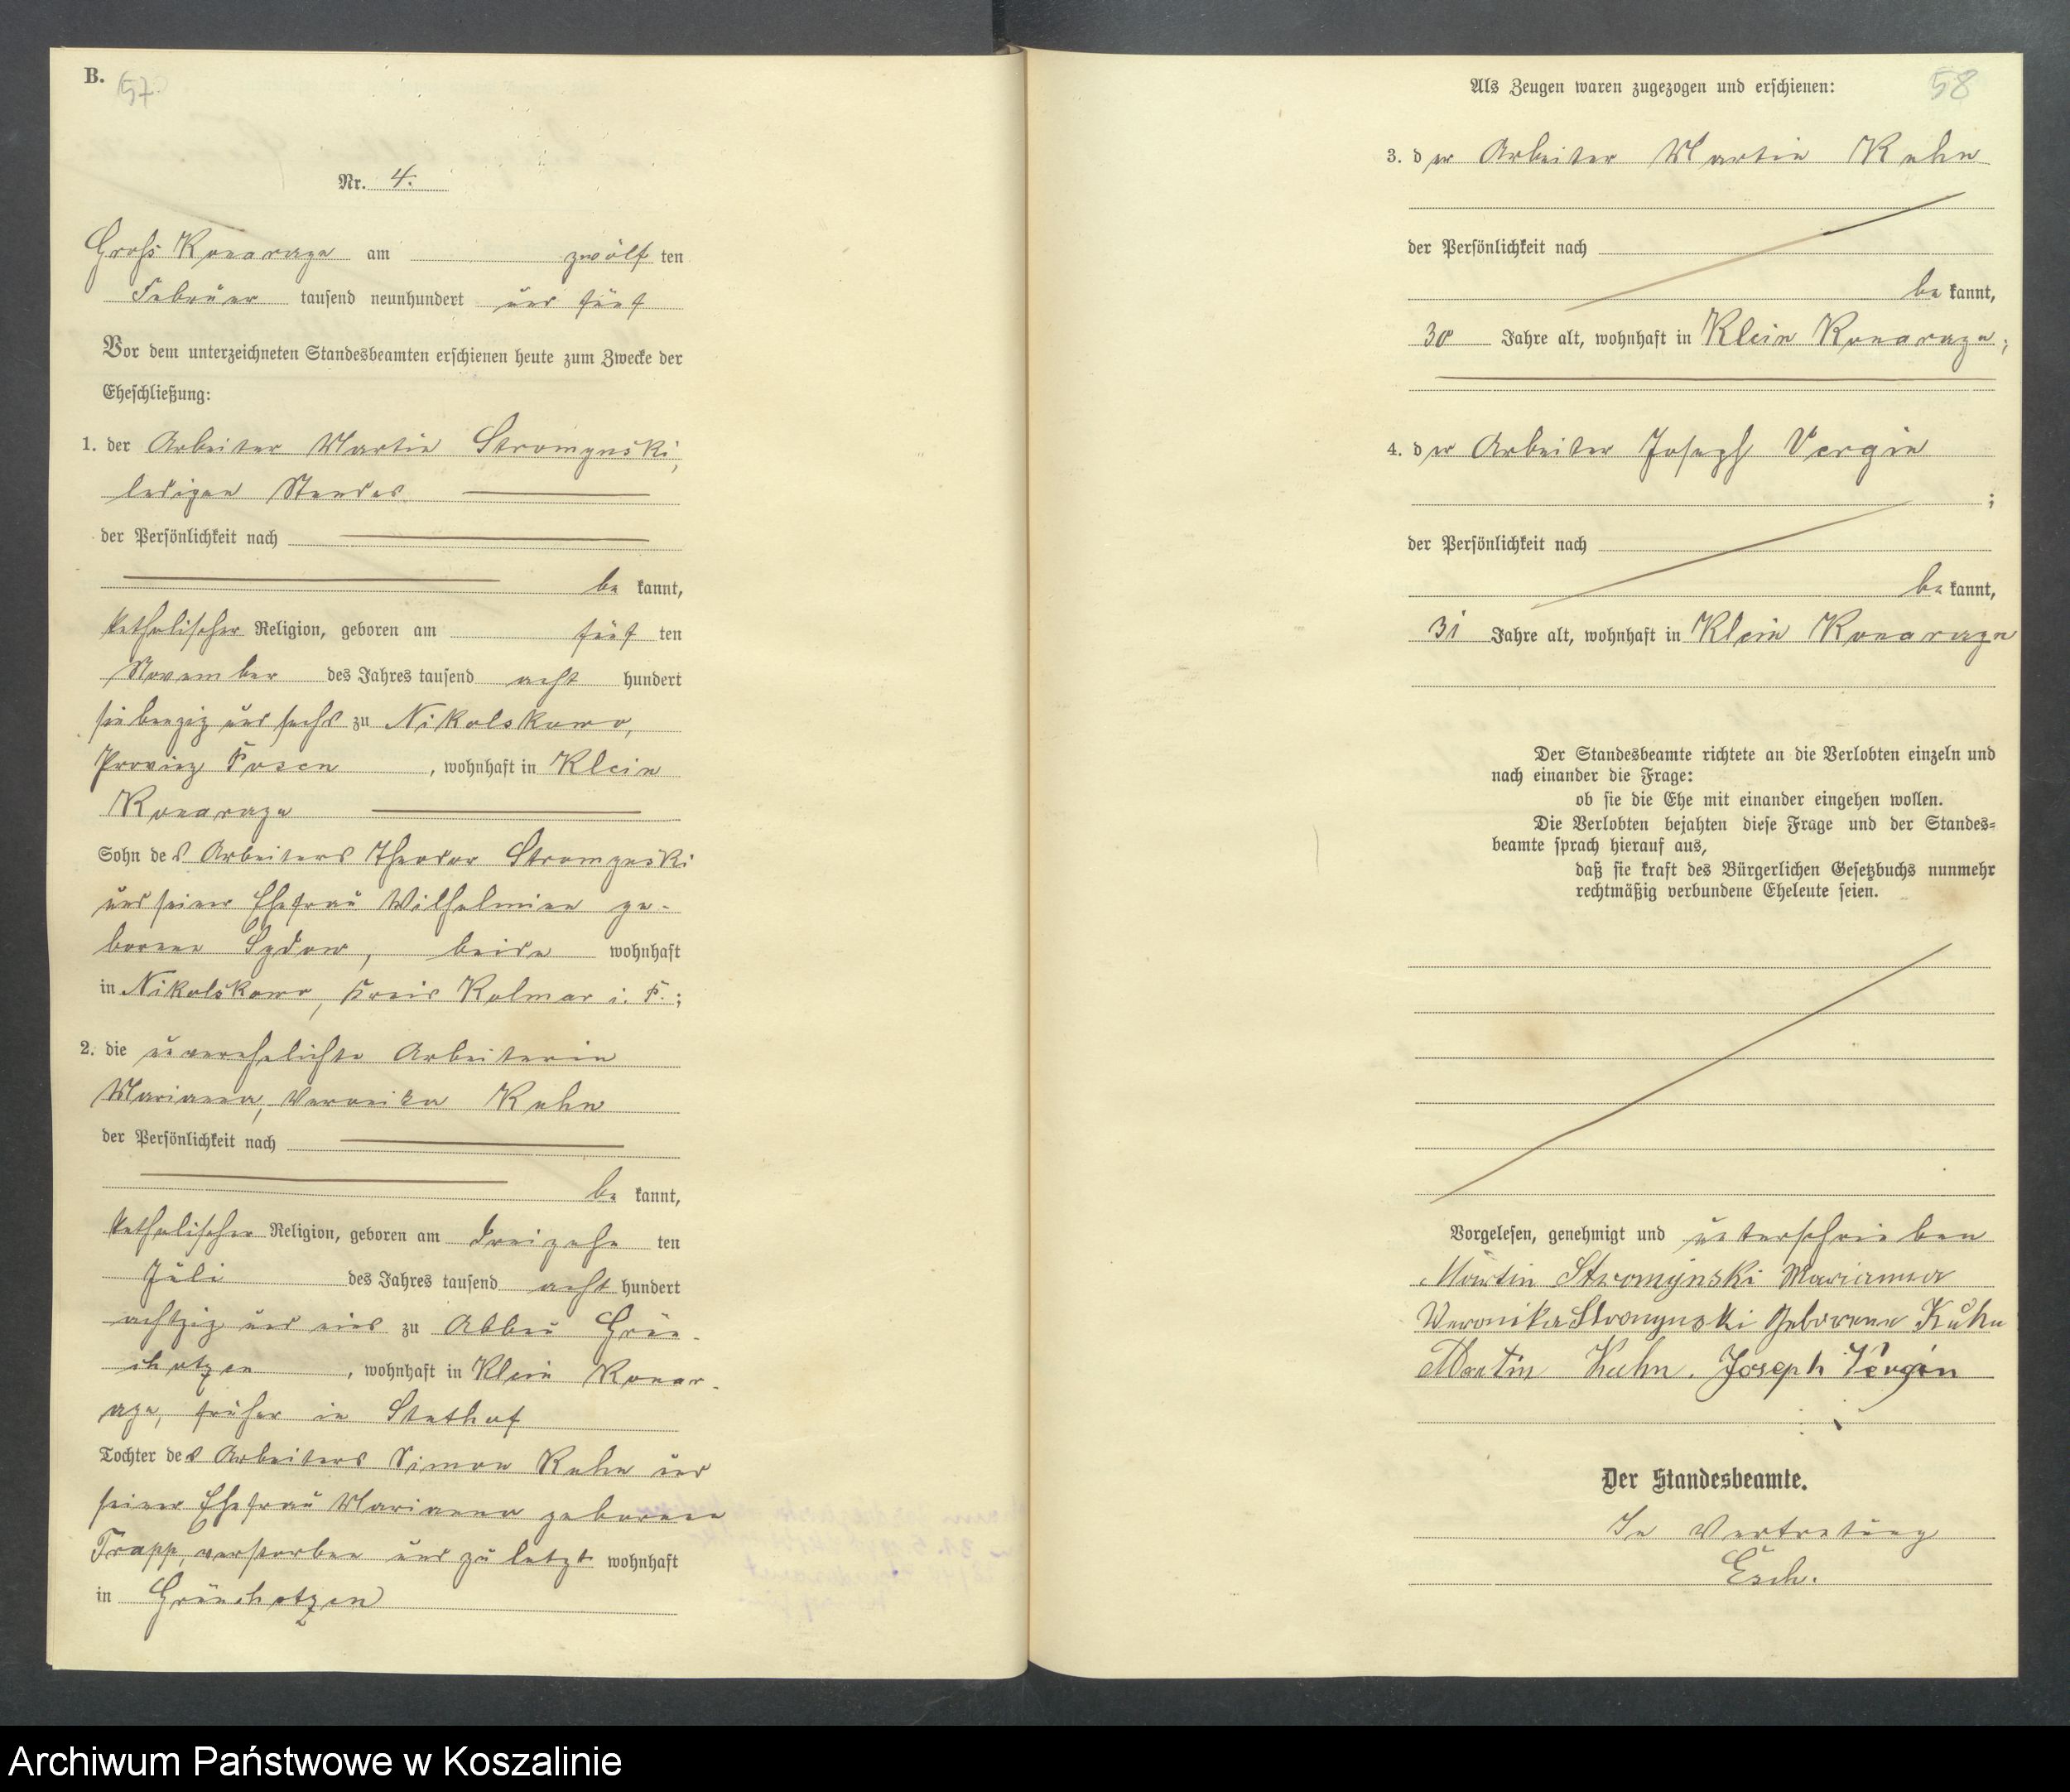 B.
57
Nr. 4.
Groß Konarzyn am zwölf ten
Februar tausend neunhundert und fünf
Vor dem unterzeichneten Standesbeamten erschienen heute zum Zwecke der
Eheschließung:
1. der Arbeiter Martin Stromynski,
ledigen Standes
der Persönlichkeit nach
be kannt,
katholischer Religion, geboren am fünf ten
November des Jahres tausend acht hundert
siebenzig und sechs zu Nikolskowo,
Provinz Posen, wohnhaft in Klein
Sohn des Arbeiters Theodor Stromynski
und seiner Ehefrau Wilhelmine ge-
borene Sydow, beide wohnhaft
in Nikolskowo, Kreis Kolmar i. P.;
2. die unverehelichte Arbeiterin
Marianna, Veronika Kuhn
der Persönlichkeit nach
be kannt,
katholischer Religion, geboren am dreizehn ten
Juli des Jahres tausend acht hundert
achtzig und eins zu Abbau Grün-
chotzen, wohnhaft in Klein
früher in
Tochter des Arbeiters Simon Kuhn und
seiner Ehefrau Marianna geborene
Trapp, verstorben und zuletzt wohnhaft
in Grünchotzen
58
Als Zeugen waren zugezogen und erschienen:
3. der Arbeiter Martin Kuhn
der Persönlichkeit nach
be kannt,
30 Jahre alt, wohnhaft in Klein
4. der Arbeiter Joseph Vergin
;
der Persönlichkeit nach
be kannt,
31 Jahre alt, wohnhaft in Klein
Der Standesbeamte richtete an die Verlobten einzeln und
nach einander die Frage:
ob sie die Ehe mit einander eingehen wollen.
Die Verlobten bejahten diese Frage und der Standes-
beamte sprach hierauf aus,
daß sie kraft des Bürgerlichen Gesetzbuchs nunmehr
rechtmäßig verbundene Eheleute seien.
Vorgelesen, genehmigt und unterschrieben
Martin Stromynski Marianna
Veronika Stromynski geborene Kuhn
Martin Kuhn. Joseph Vergin
Der Standesbeamte.
In Vertretung
Esch.
Archiwum Państwowe w Koszalinie